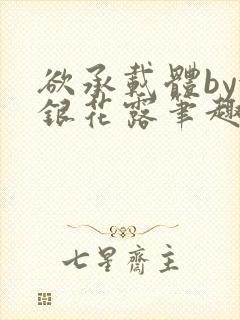 欲承载體by
銀花露筆趣
七星齋主